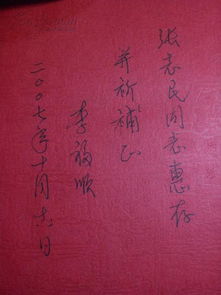 张志民同志惠存
并祈補正
李福顺
二〇〇七年十月十六日